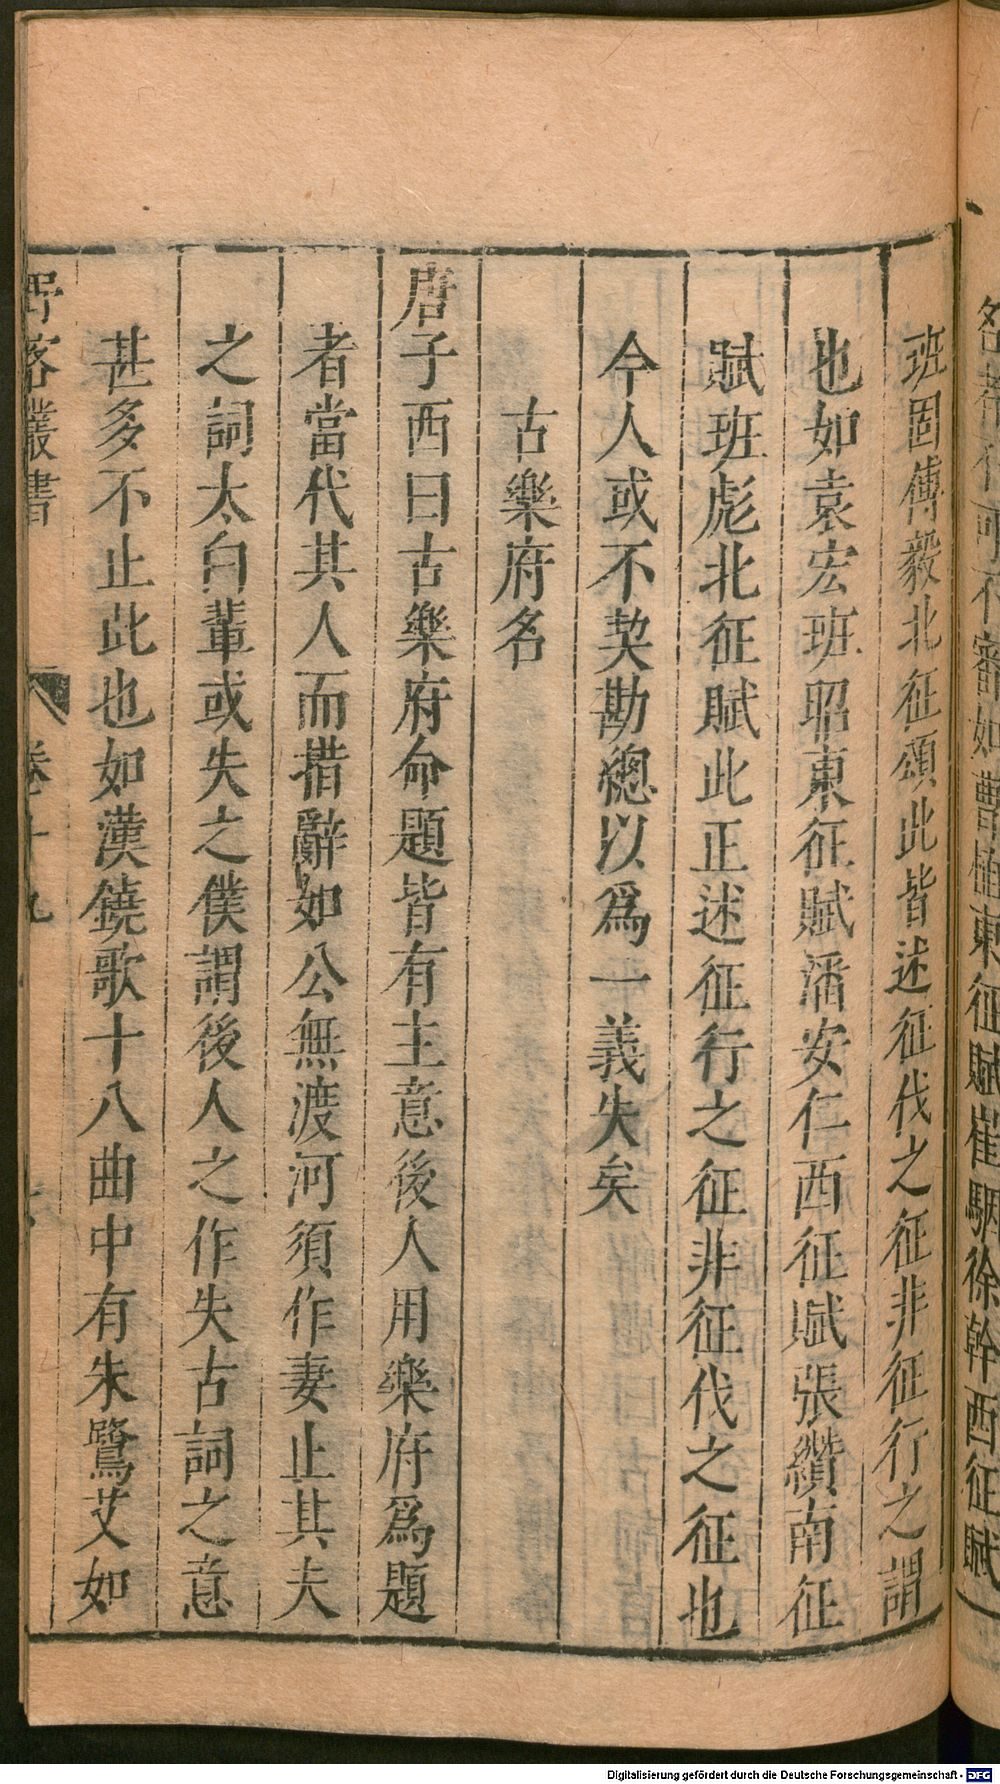 班固傅毅北征頌此皆述征伐之征非征行之謂
也如袁宏班昭東征賦潘安仁西征賦張纘南征
賦班彪北征賦此正述征行之征非征伐之征也
今人或不契勘總以爲一義失矣
古樂府名
唐子西曰古樂府命題皆有主意後人用樂府爲題
者當代其人而措辭如公無渡河須作妻止其夫
之詞太白輩或失之僕謂後人之作失古詞之意
甚多不止此也如漢鐃歌十八曲中有朱鷺艾如
野客叢書 卷十九
Digitalisierung gefördert durch die Deutsche Forschungsgemeinschaft - DFG